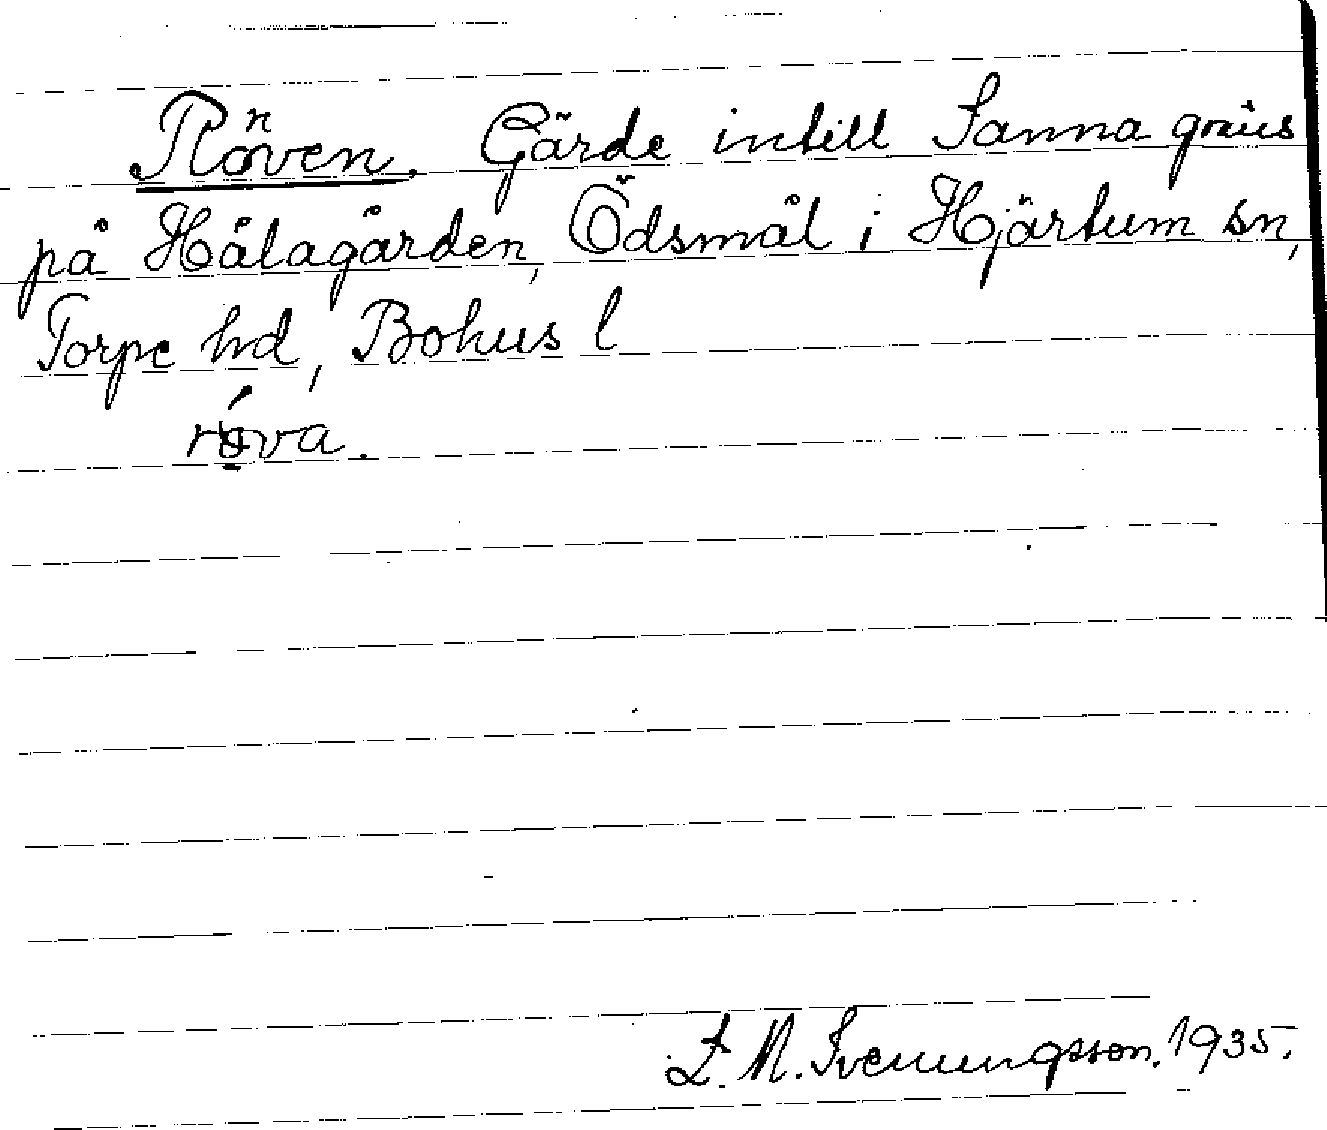 Röven. Gärde intill Sanna gräns
på Hålagården, Ödsmål i Hjärtum sn,
Torpe hd, Bohus l
rǿva.
S. M. Svenungsson. 1935.